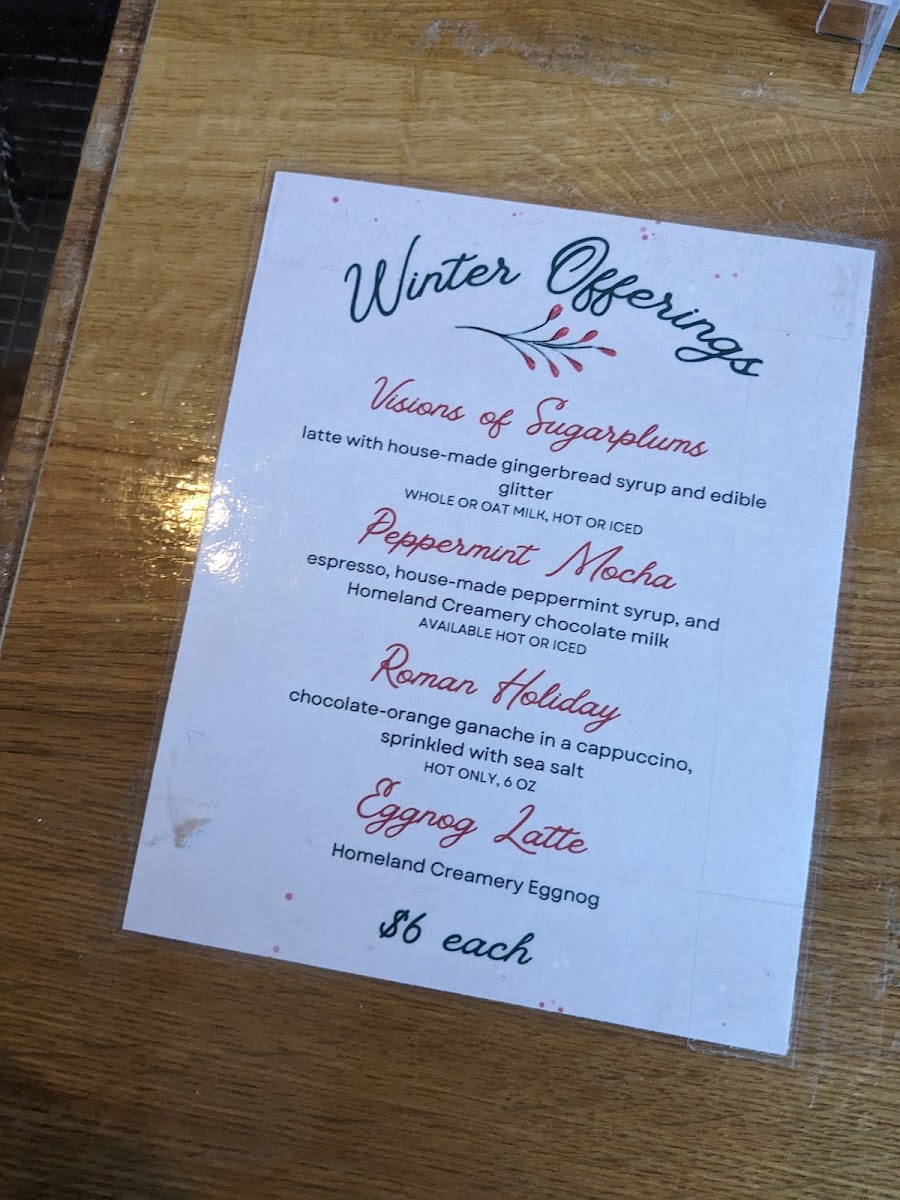 Winter Offerings
Visions of Sugarplums
latte with house-made gingerbread syrup and edible
glitter
WHOLE OR OAT MILK, HOT OR ICED
Peppermint Mocha
espresso, house-made peppermint syrup, and
Homeland Creamery chocolate milk
AVAILABLE HOT OR ICED
Roman Holiday
chocolate-orange ganache in a cappuccino,
sprinkled with sea salt
HOT ONLY, 6 OZ
Eggnog Latte
Homeland Creamery Eggnog
$6 each